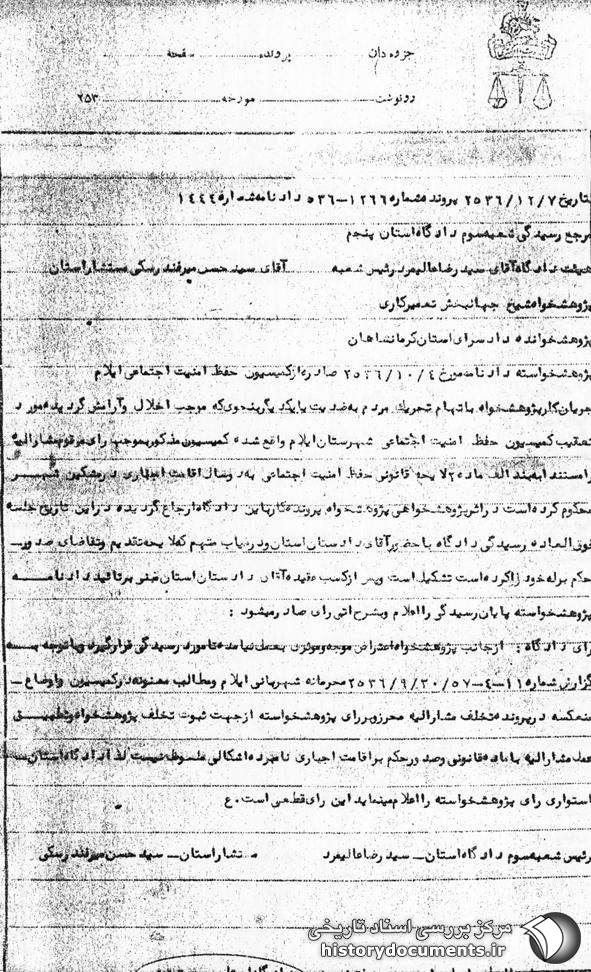 جزوه دان پرونده صفحه
رونوشت مورخه ۲۵۳
بتاریخ ۲۵۳۶/۱۲/۷ پرونده شماره ۱۲۶۶–۵۳۶ دادنامه شماره ۱۴۴۴
مرجع رسیدگی شعبه سوم دادگاه استان پنجم
هیئت دادگاه آقای سید رضا عالیمرد رئیس شعبه آقای سید حسن میرفندرسکی مستشار استان
پژوهشخواه شیخ جهانبخش تعمیرکاری
پژوهشخوانده دادسرای استان کرمانشاهان
پژوهشخواسته دادنامه مورخ ۲۵۳۶/۱۰/۴ صادره از کمیسیون حفظ امنیت اجتماعی ایلام
جریان کار پژوهشخواه باتهام تحریک مردم به ضدیت با یکدیگر بنحوی که موجب اخلال و آرامش گردیده مورد
تعقیب کمیسیون حفظ امنیت اجتماعی شهرستان ایلام واقع شده کمیسیون مذکور بموجب رای مرقوم مشارالیه
را مستندا به بند الف ماده ۲ لایحه قانونی حفظ امنیت اجتماعی به دو سال اقامت اجباری در مشکین شهر
محکوم کرده است در اثر پژوهشخواهی پژوهشخواه پرونده کار باین دادگاه ارجاع گردیده در این تاریخ جلسه
فوق العاده رسیدگی دادگاه با حضور آقای دادستان استان و در غیاب متهم که لایحه تقدیم و تقاضای صدور
حکم برله خود را کرده است تشکیل است و پس از کسب عقیده آقای دادستان استان مبنی بر تائید دادنامه
پژوهشخواسته پایان رسیدگی را اعلام و بشرح اتی رای صادر میشود :
رای دادگاه : از جانب پژوهشخواه اعتراض موجه و موثری بعمل نیامده تا مورد رسیدگی قرار گیرد و با توجه به
گزارش شماره ۱۱–۴–۲۵۳۶/۹/۲۰/۵۷ محرمانه شهربانی ایلام و مطالب معنونه در کمیسیون و اوضاع
منعکسه در پرونده تخلف مشارالیه محرز و بر رای پژوهشخواسته از جهت ثبوت تخلف پژوهشخواه و تطبیق
عمل مشارالیه با ماده قانونی و صدور حکم بر اقامت اجباری نامبرده اشکالی ملحوظ نیست لذا دادگاه استان
استواری رای پژوهشخواسته را اعلام مینماید این رای قطعی است. ع
رئیس شعبه سوم دادگاه استان – سید رضا عالیمرد مستشار استان – سید حسن میرفندرسکی
مرکز بررسی اسناد تاریخی
historydocuments.ir